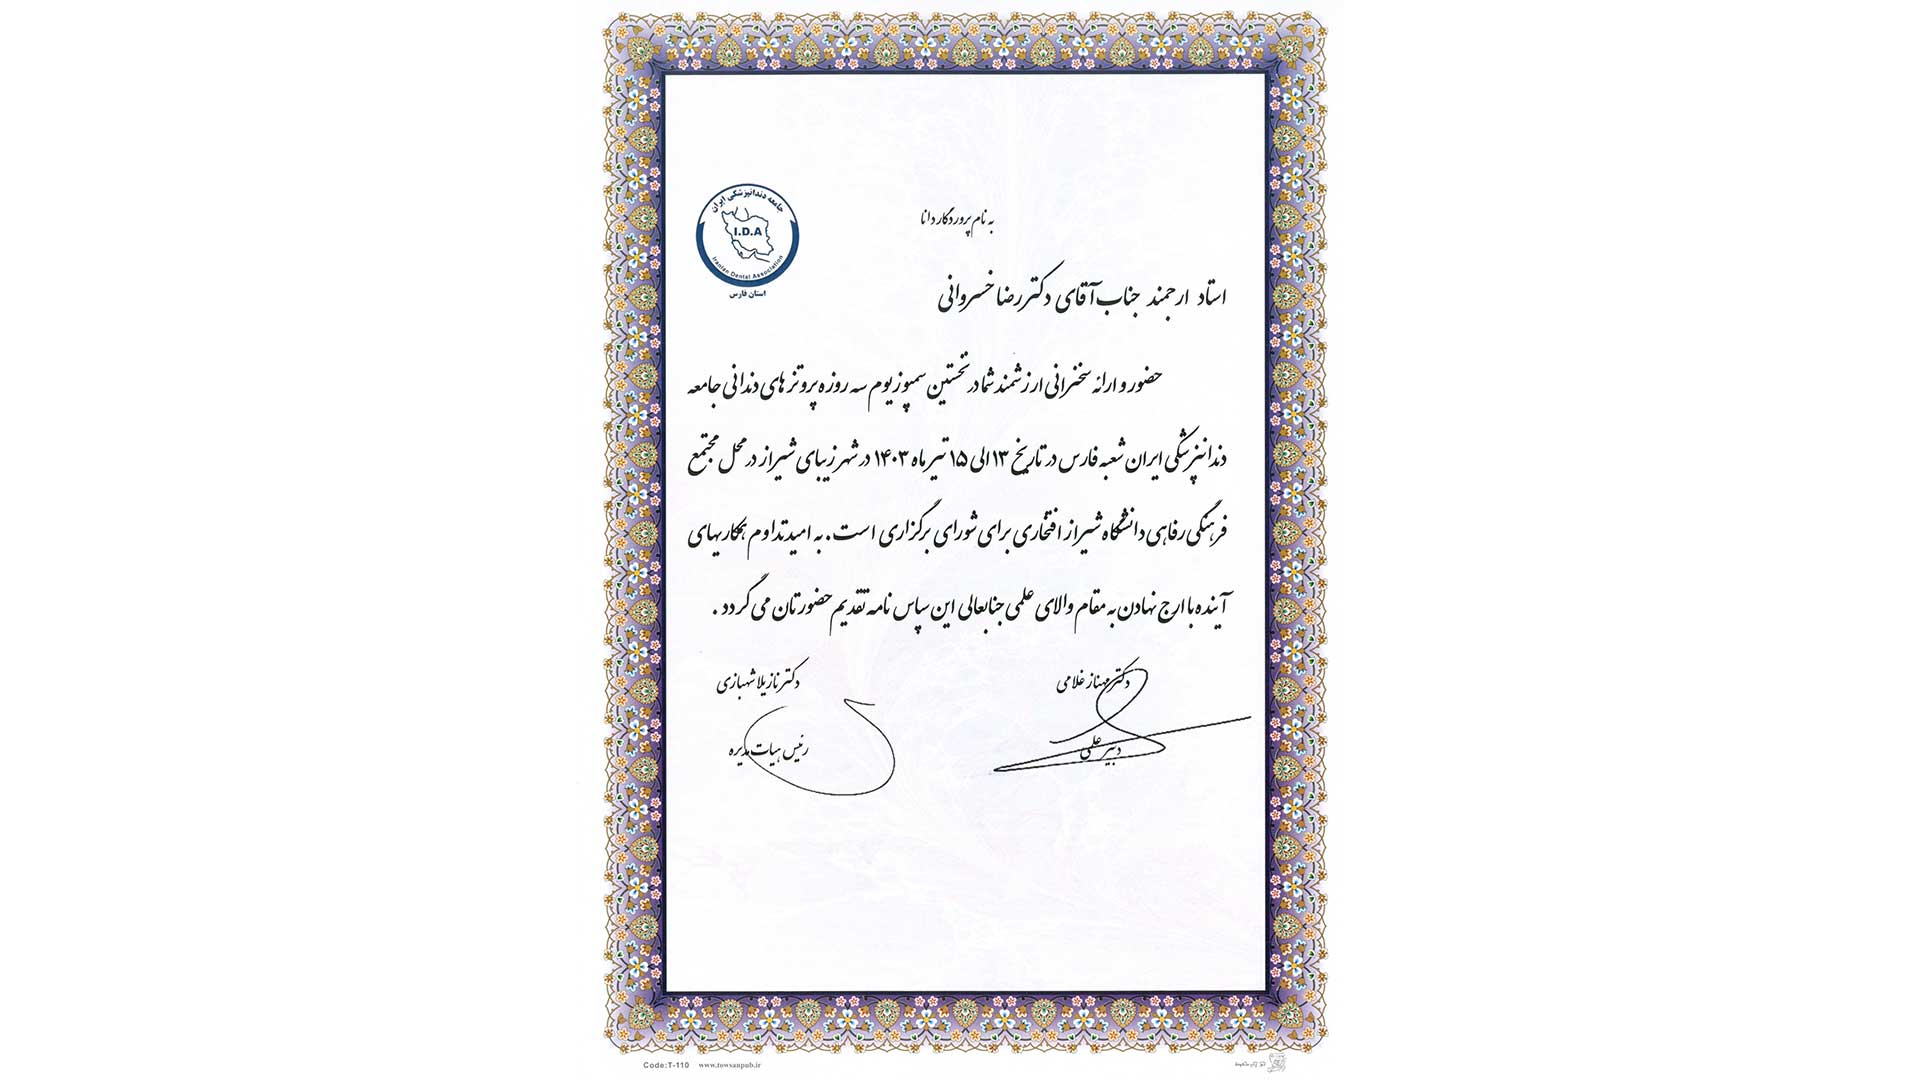 جامعه دندانپزشکی ایران
I.D.A
Iranian Dental Association
استان فارس
به نام پروردگار دانا
استاد ارجمند جناب آقای دکتر رضا خسروانی
حضور و ارائه سخنرانی ارزشمند شما در نخستین سمپوزیوم سه روزه پروتزهای دندانی جامعه
دندانپزشکی ایران شعبه فارس در تاریخ ۱۳ الی ۱۵ تیر ماه ۱۴۰۳ در شهر زیبای شیراز در محل مجتمع
فرهنگی رفاهی دانشگاه شیراز افتخاری برای شورای برگزاری است. به امید تداوم همکاریهای
آینده با ارج نهادن به مقام والای علمی جنابعالی این سپاس نامه تقدیم حضورتان می گردد.
دکتر مهناز غلامی
دبیر علمی
دکتر نازیلا شهبازی
رئیس هیات مدیره
Code:T-110 www.towsanpub.ir